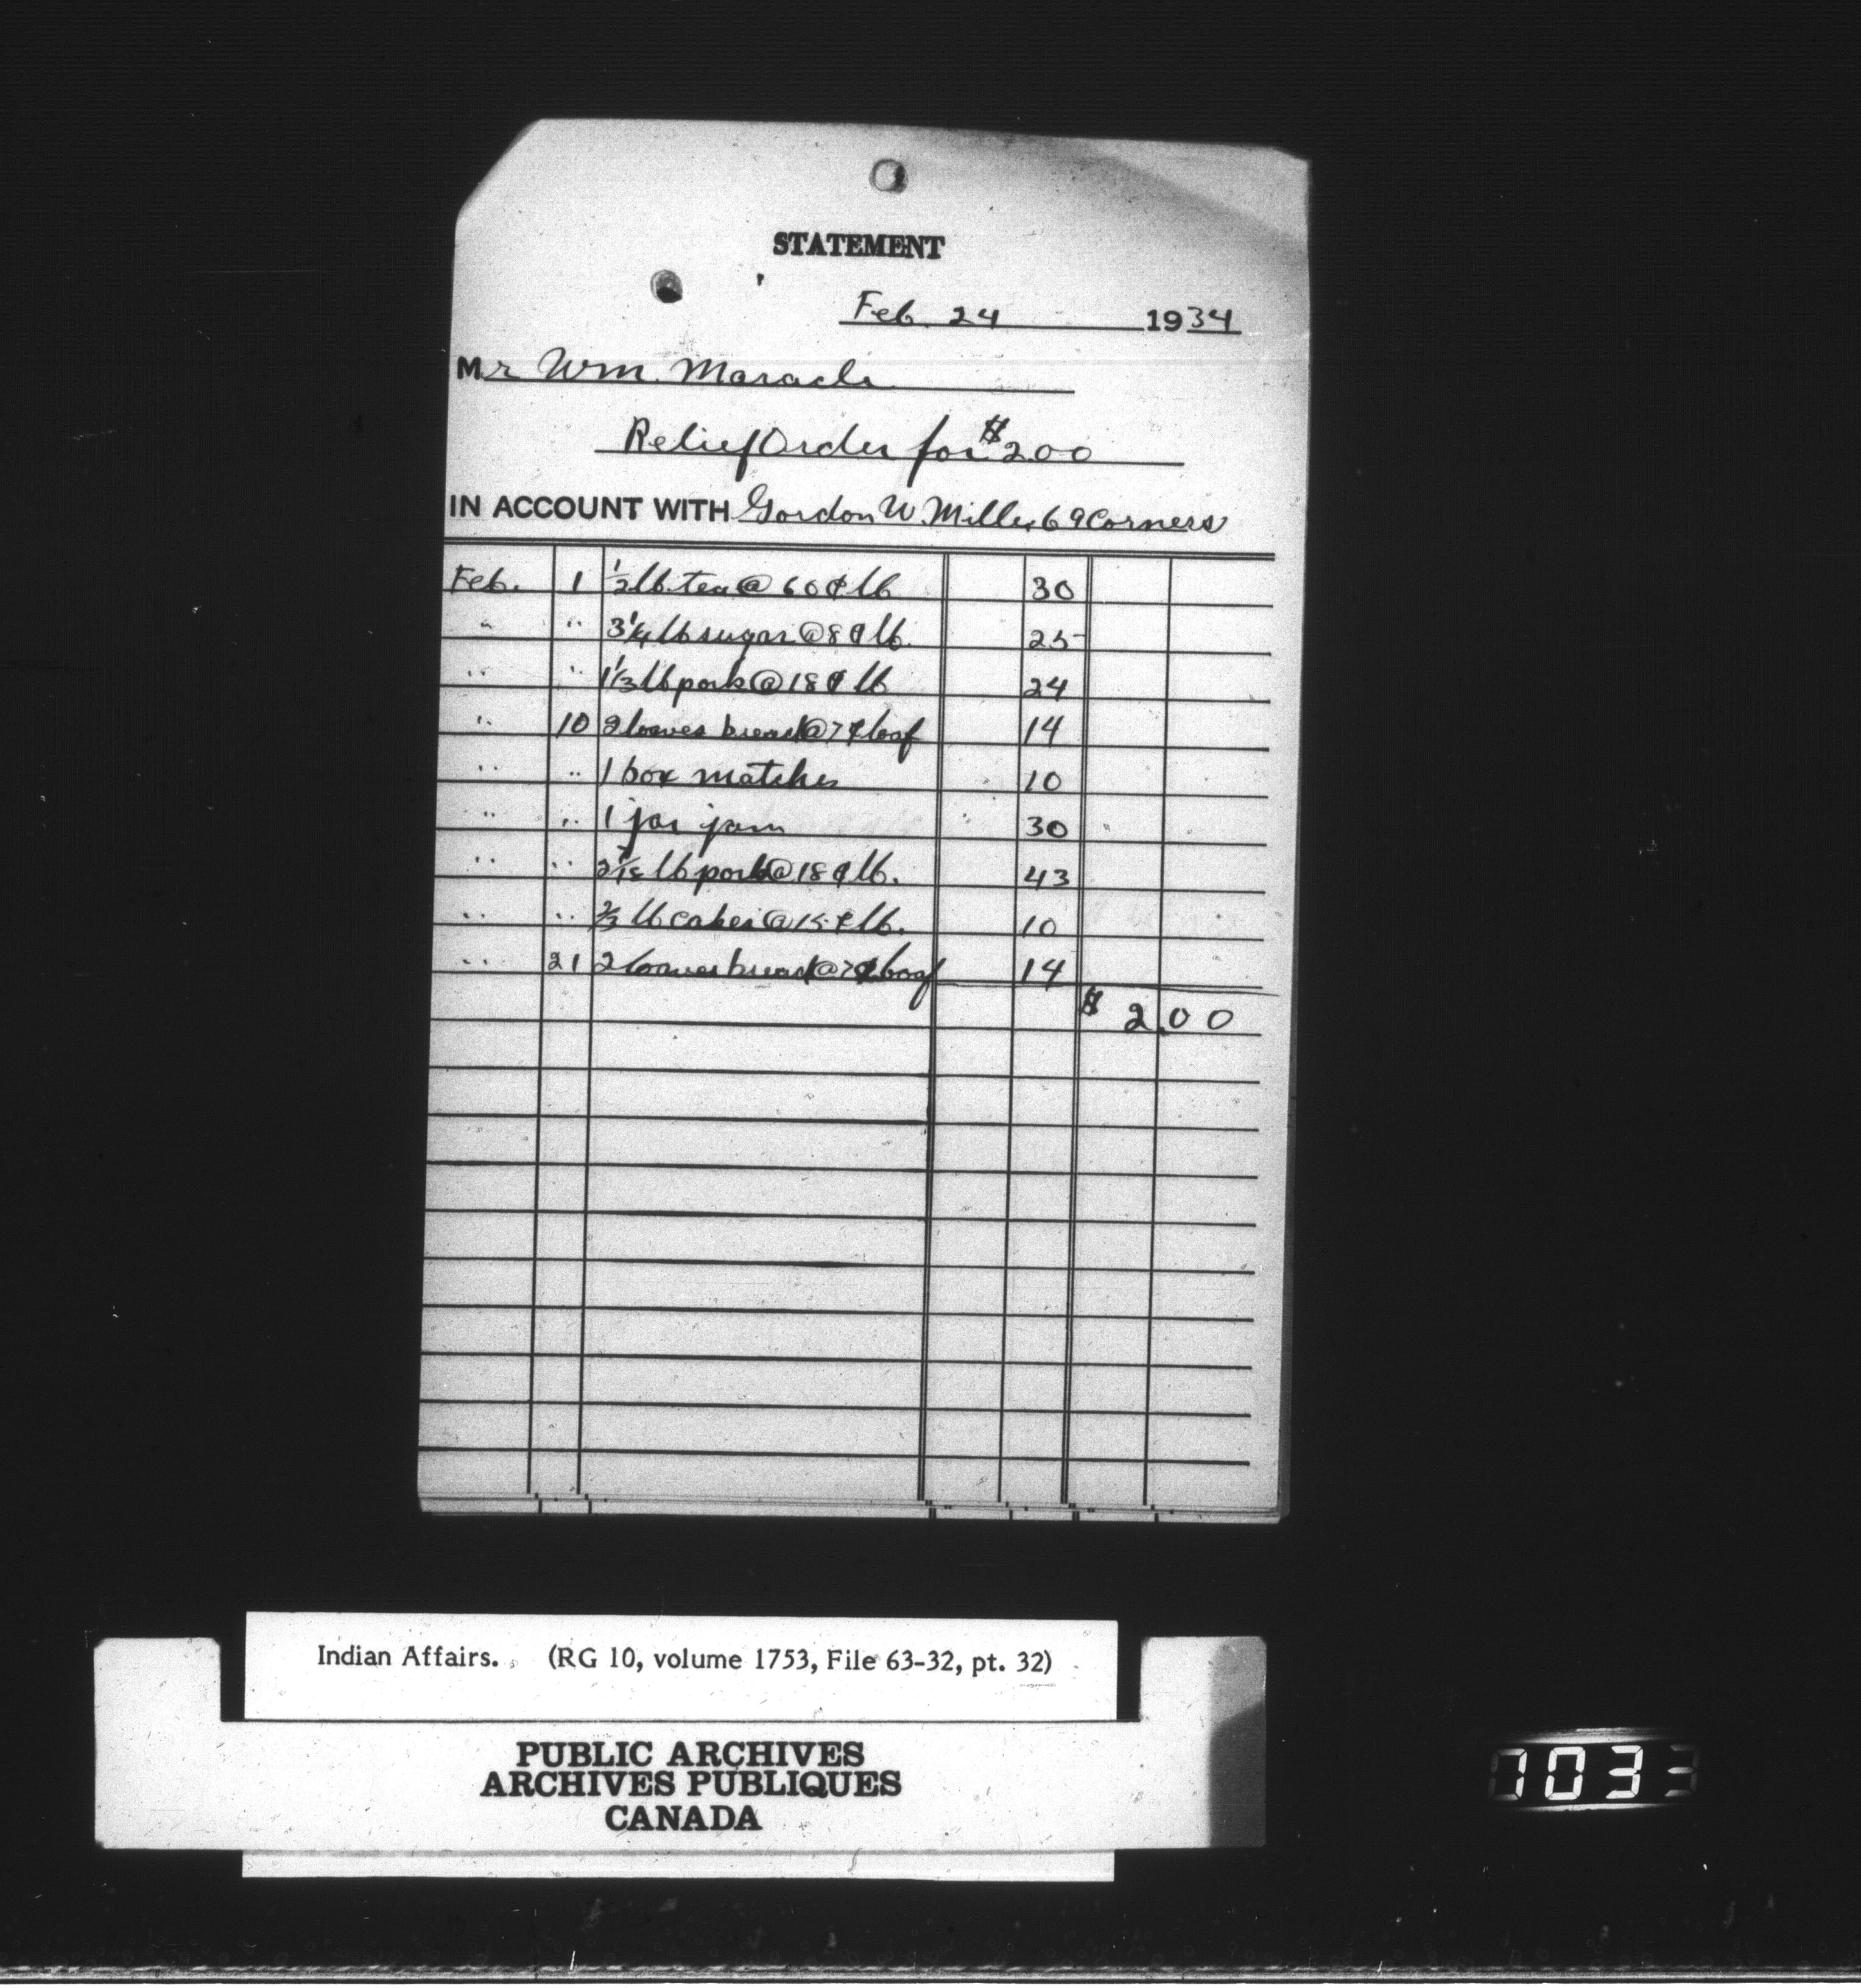 STATEMENT
Feb. 24 1934
Mr Wm. Maracle
Relief Order for $2.00
IN ACCOUNT WITH Gordon W. Miller, 69 Corners
Feb. 1 1/2 lb. tea @ 60¢ lb 30
" " 3 1/4 lb sugar @ 8¢ lb. 25
" " 1 1/3 lb pork @ 18¢ lb 24
" 10 2 loaves bread @ 7¢ loaf 14
" " 1 box matches 10
" " 1 jar jam 30
" " 2 7/18 lb pork @ 18¢ lb. 43
" " 2/3 lb cakes @ 15¢ lb. 10
" 21 2 loaves bread @ 7¢ loaf 14
$ 2.00
Indian Affairs. (RG 10, volume 1753, File 63-32, pt. 32)
PUBLIC ARCHIVES
ARCHIVES PUBLIQUES
CANADA